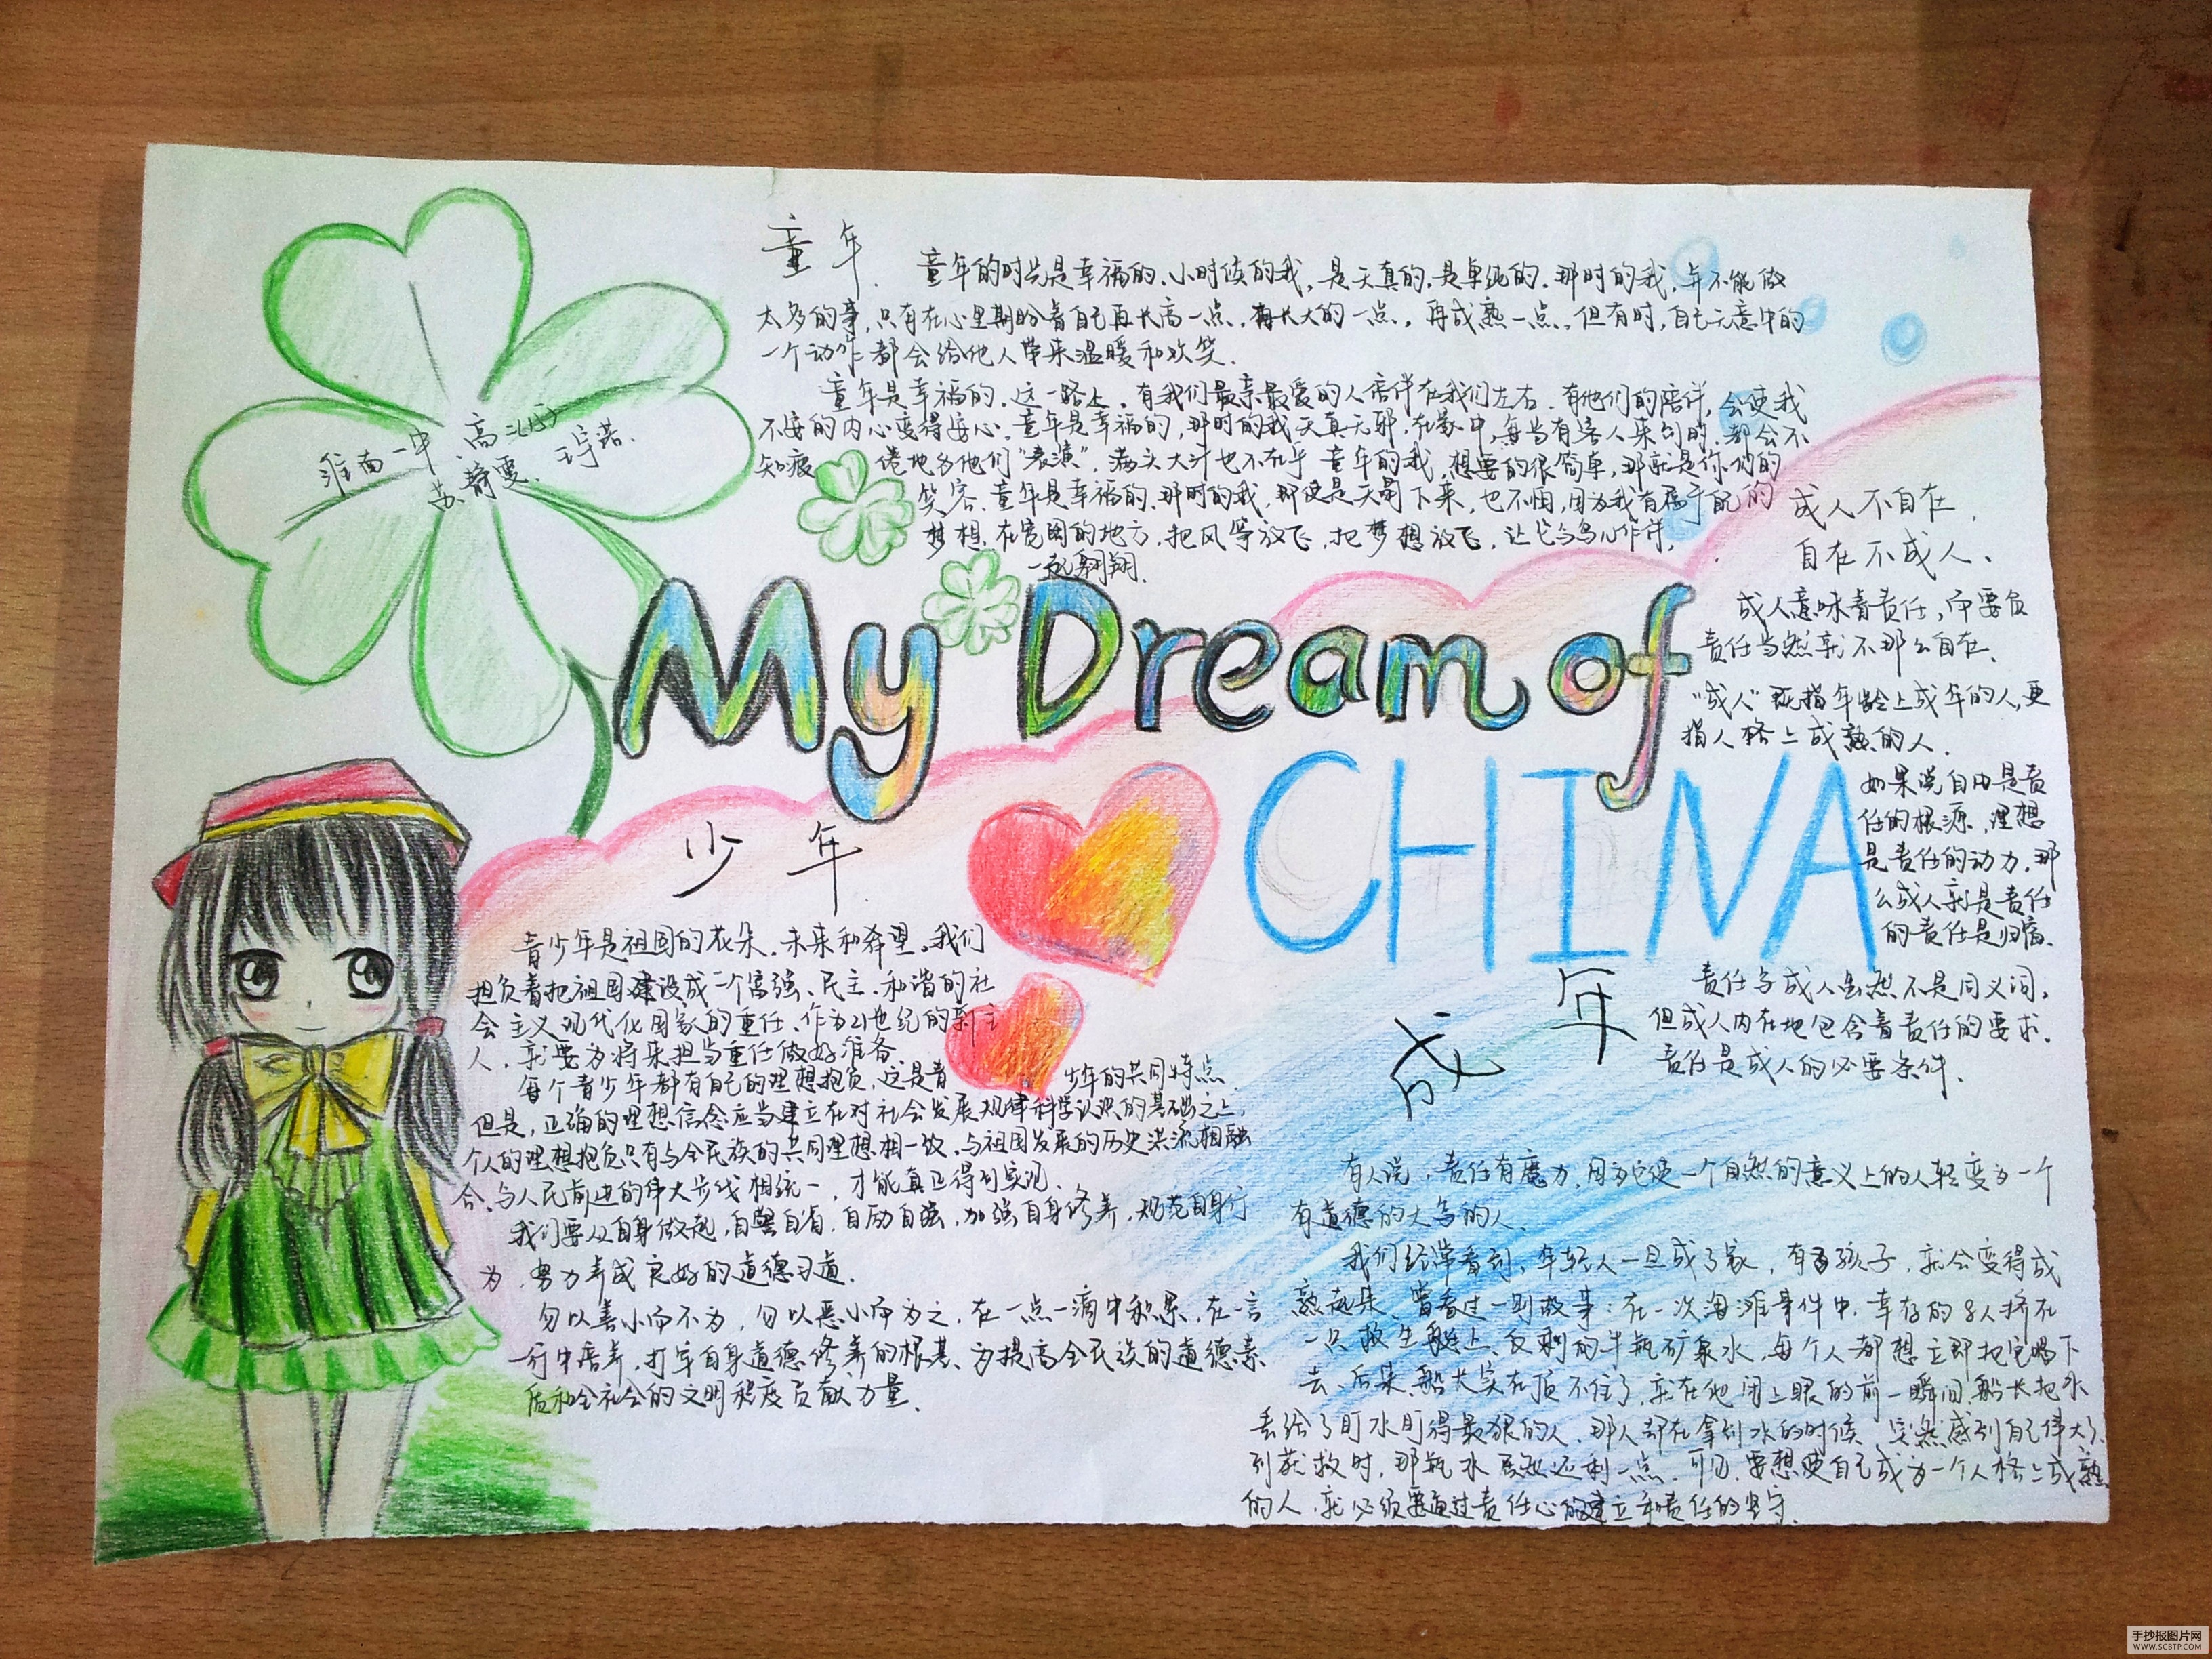 童年.
童年的时光是幸福的、小时候的我,是天真的,是单纯的.那时的我,并不能做
太多的事,只有在心里期盼着自己再长高一点,再长大的一点,再成熟一点.但有时,自己无意中的
一个动作都会给他人带来温暖和欢笑.
童年是幸福的.这一路上,有我们最亲最爱的人陪伴在我们左右.有他们的陪伴,会使我
不安的内心变得安心.童年是幸福的,那时的我天真无邪,在家中,每当有客人来到时.都会不
知疲倦地为他们“表演”,满头大汗也不在乎 童年的我,想要的很简单,那就是你们的
笑容.童年是幸福的.那时的我,那便是天塌下来,也不怕,因为我有属于自己的
梦想.在宽阔的地方,把风筝放飞,把梦想放飞,让它与鸟儿作伴,
一起翱翔.
淮南一中 高二(15)
苏静雯. 王宇诺.
My Dream of
CHINA
少年
青少年是祖国的花朵、未来和希望。我们
担负着把祖国建设成一个富强、民主、和谐的社
会主义现代化国家的重任、作为21世纪的新主
人,就要为将来担当重任做好准备.
每个青少年都有自己的理想抱负,这是青少年的共同特点.
但是,正确的理想信念应当建立在对社会发展规律科学认识的基础之上,
个人的理想抱负只有与全民族的共同理想相一致、与祖国发展的历史洪流相融
合、与人民前进的伟大步伐相统一,才能真正得到实现.
我们要从自身做起,自警自省,自励自强,加强自身修养,规范自身行
为,努力养成良好的道德习道.
勿以善小而不为,勿以恶小而为之,在一点一滴中积累,在一言
一行中培养,打牢自身道德修养的根基、为提高全民族的道德素
质和全社会的文明程度贡献力量.
成人不自在,
自在不成人、
成人意味着责任,而要负
责任当然就不那么自在.
“成人”既指年龄上成年的人,更
指人格上成熟的人.
如果说自由是责
任的根源,理想
是责任的动力,那
么成人就是责任
的责任是归宿.
责任与成人虽然不是同义词,
但成人内在地包含着责任的要求.
责任是成人的必要条件.
成年
有人说,责任有魔力,因为它使一个自然的意义上的人轻变为一个
有道德的大写的人.
我们经常看到,年轻人一旦成了家,有了孩子,就会变得成
熟起来、曾看过一则故事:在一次海难事件中,幸存的8人挤在
一只救生艇上、仅剩的半瓶矿泉水,每个人都想立即把它喝下
去、后来、船长实在顶不住了,就在他闭上眼的前一瞬间,船长把水
丢给了盯水盯得最狠的人、那人却在拿到水的时候 突然感到自己伟大了、
到获救时,那瓶水居然还剩一点.可见,要想使自己成为一个人格上成熟
的人,就必须要通过责任心的建立和责任的坚守.
手抄报图片网
WWW.SCBTP.COM